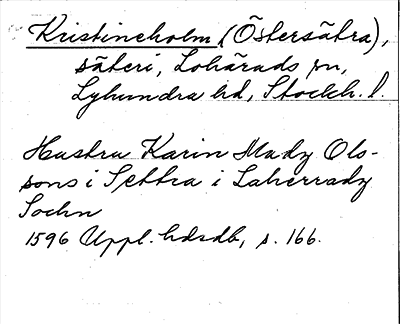 Kristineholm (Östersätra),
säteri, Lohärads sn,
Lyhundra hd, Stockh. l.
Hustru Karin Mady Ols-
sons i Settra i Laherrady
Sochn
1596 Uppl. hdrdb, s. 166.